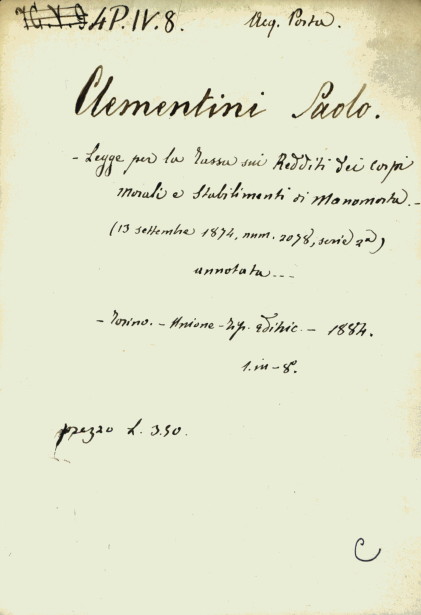 4P.IV.8. Acq. Porta.
Clementini Paolo.
- Legge per la Tassa sui Redditi dei Corpi
Morali e Stabilimenti di Manomorta. -
(13 settembre 1874, num. 2078, serie 2ª)
annotata...
- Torino. - Unione - Tip. Editric. - 1884.
1. in - 8.
prezzo L. 3.50.
C